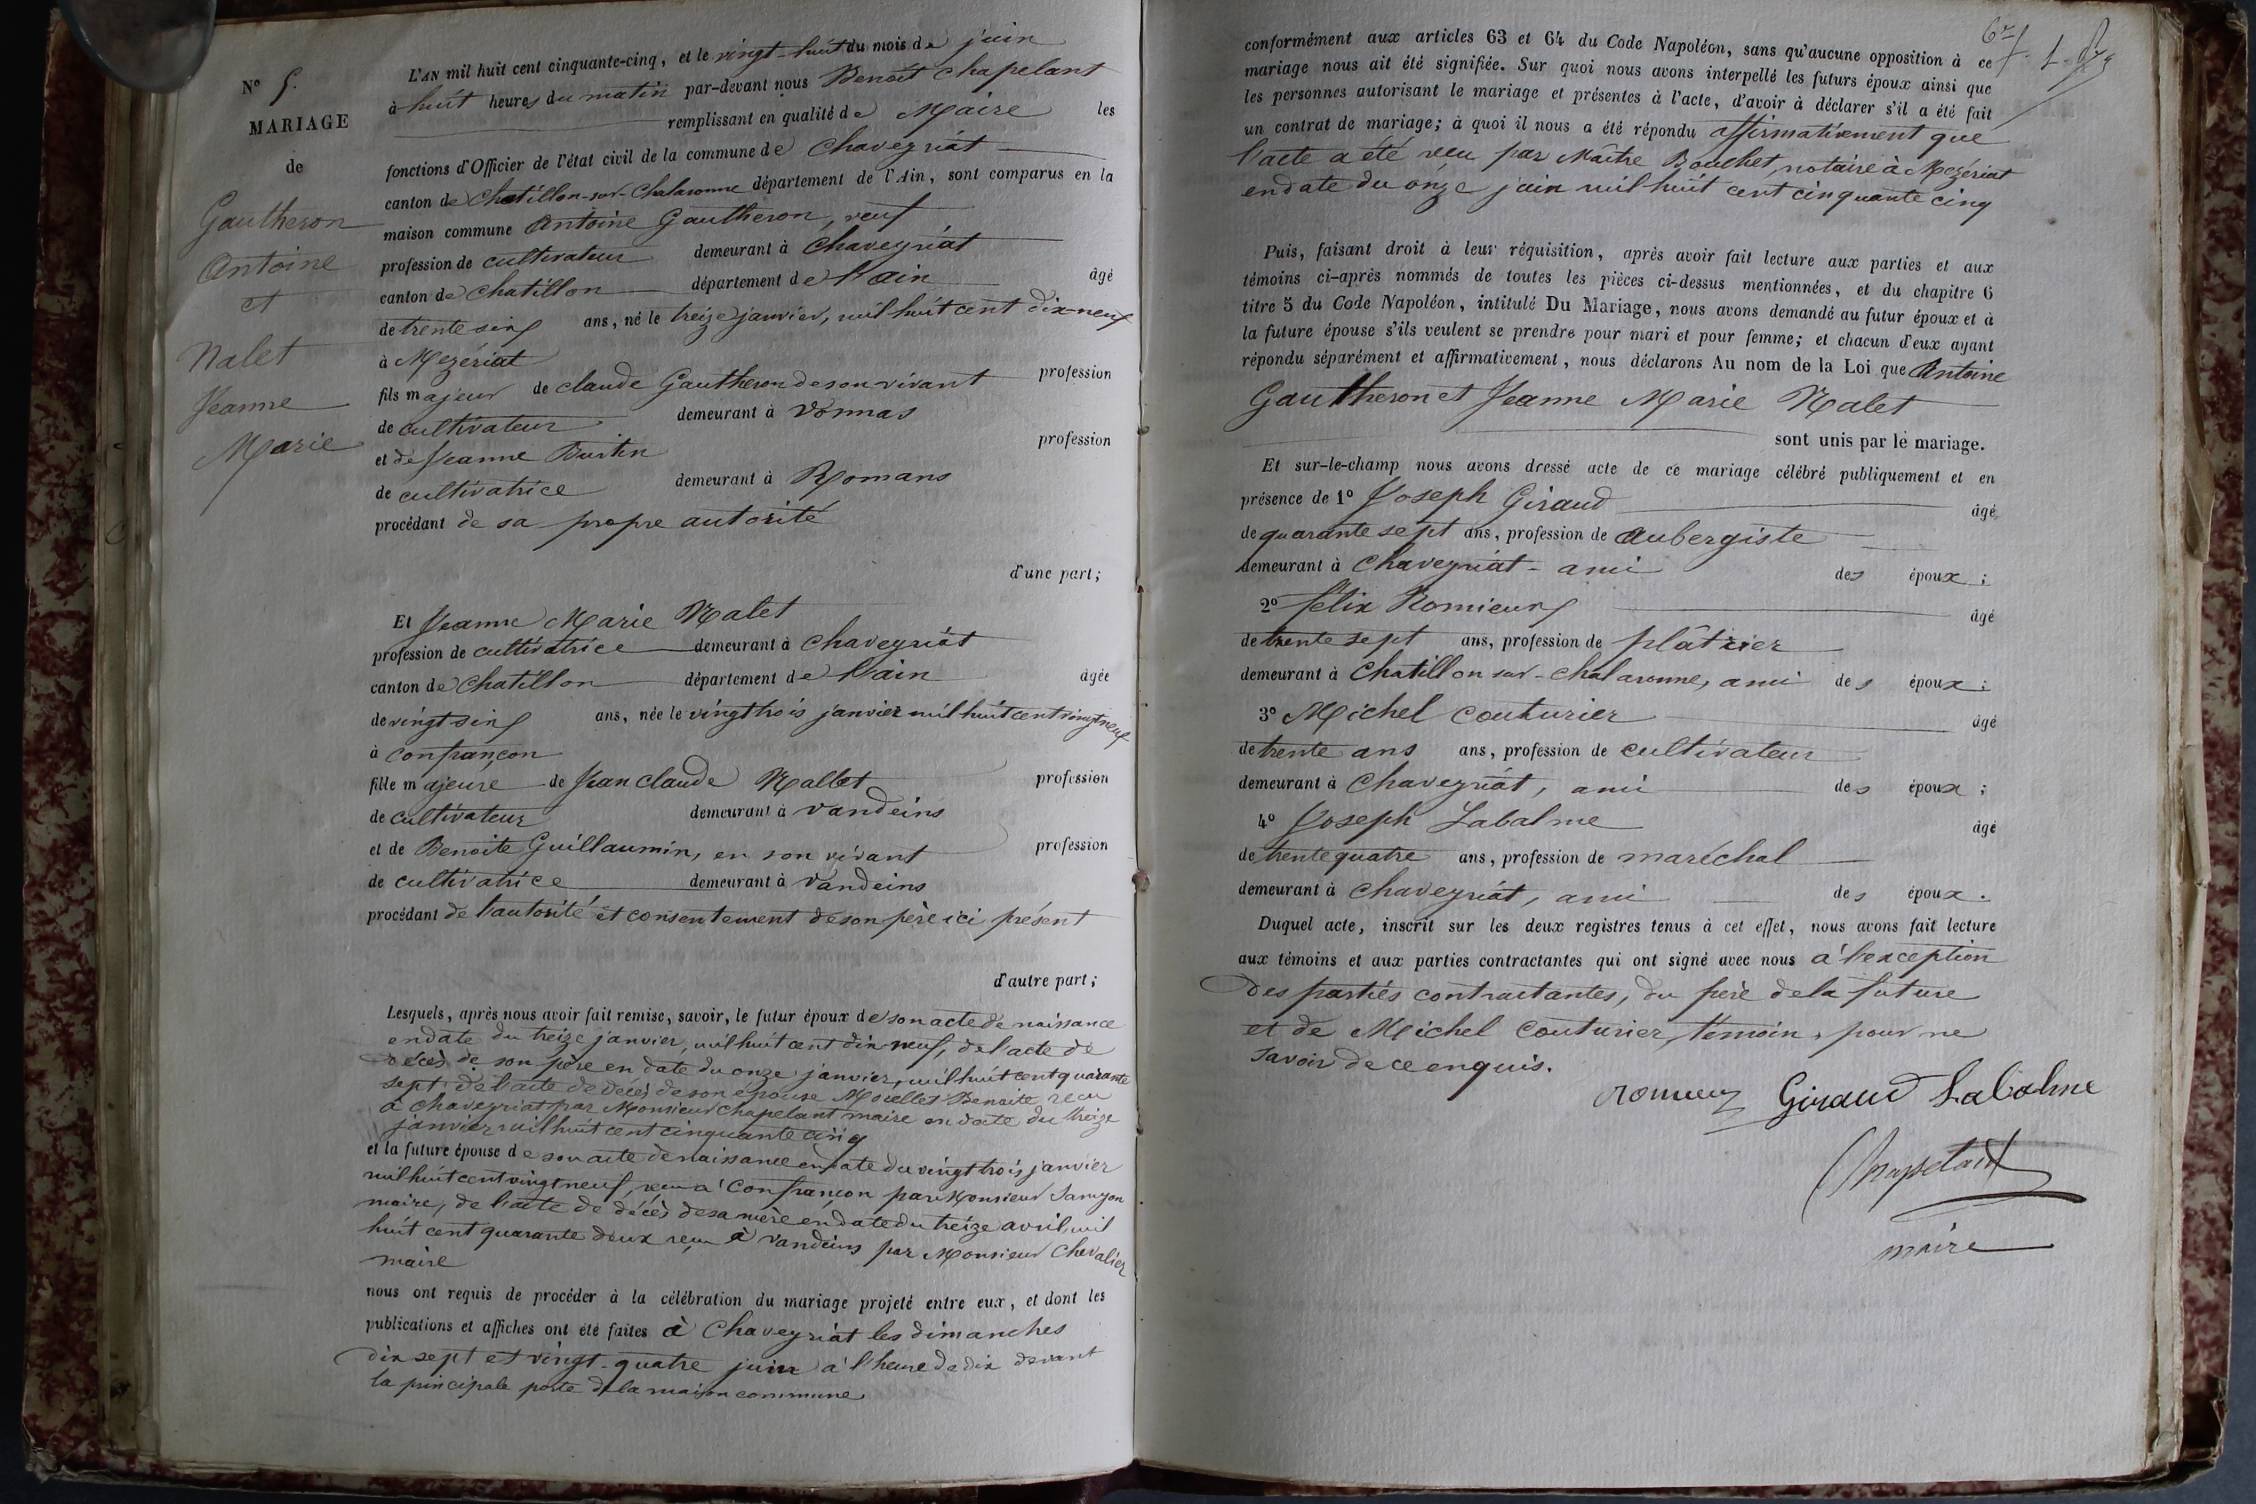 N° 5.
MARIAGE
de
Gautheron
Antoine
et
Nalet
Jeanne
Marie
L'AN mil huit cent cinquante-cinq, et le vingt-huit du mois de juin
à huit heures du matin par-devant nous Benoît Chapelant
remplissant en qualité de Maire les
fonctions d'Officier de l'état civil de la commune de Chaveyriat
canton de Chatillon-sur-Chalaronne département de l'Ain, sont comparus en la
maison commune Antoine Gautheron, veuf
profession de cultivateur demeurant à Chaveyriat
canton de Chatillon département de l'ain âgé
de trente six ans, né le treize janvier, mil huit cent dix-neuf
à Mezériat
fils majeur de claude Gautheron de son vivant profession
de cultivateur demeurant à Vonnas
et de Jeanne profession
de cultivatrice demeurant à Romans
procédant de sa propre autorité
d'une part;
Et Jeanne Marie Nalet
profession de cultivatrice demeurant à Chaveyriat
canton de Chatillon département de l'ain âgée
de vingt six ans, née le vingt trois janvier mil huit cent vingt neuf
à confrançon
fille majeure de Jean claude Nallet profession
de cultivateur demeurant à Vandeins
et de Benoite Guillaumin, en son vivant profession
de cultivatrice demeurant à Vandeins
procédant de l'autorité et consentement de son père ici présent
d'autre part;
Lesquels, après nous avoir fait remise, savoir, le futur époux de son acte de naissance
en date du treize janvier, mil huit cent dix neuf, de l'acte de
décès de son père en date du onze janvier, mil huit cent quarante
sept, de l'acte de décès de son épouse Benoite recu
à chaveyriat par Monsieur chapelant maire en date du treize
janvier mil huit cent cinquante cinq
et la future épouse de son acte de naissance en date du vingt trois janvier
mil huit cent vingt neuf, recu à Confrançon par Monsieur
maire, de l'acte de décès de sa mère en date du treize avril mil
huit cent quarante deux reçu à Vandeins par Monsieur Chevalier
maire
nous ont requis de procéder à la célébration du mariage projeté entre eux, et dont les
publications et affiches ont été faites à Chaveyriat les dimanches
dix sept et vingt-quatre juin à l'heure de dix devant
la principale porte de la maison commune
conformément aux articles 63 et 64 du Code Napoléon, sans qu'aucune opposition à ce
mariage nous ait été signifiée. Sur quoi nous avons interpellé les futurs époux ainsi que
les personnes autorisant le mariage et présentes à l'acte, d'avoir à déclarer s'il a été fait
un contrat de mariage; à quoi il nous a été répondu affirmativement que
l'acte a été recu par Maître Bouchet, notaire à Mezériat
en date du onze juin mil huit cent cinquante cinq
Puis, faisant droit à leur réquisition, après avoir fait lecture aux parties et aux
témoins ci-après nommés de toutes les pièces ci-dessus mentionnées, et du chapitre 6
titre 5 du Code Napoléon, intitulé Du Mariage, nous avons demandé au futur époux et à
la future épouse s'ils veulent se prendre pour mari et pour femme; et chacun d'eux ayant
répondu séparément et affirmativement, nous déclarons Au nom de la Loi que Antoine
Gautheron et Jeanne Marie Nalet
sont unis par le mariage.
Et sur-le-champ nous avons dressé acte de ce mariage célébré publiquement et en
présence de 1° Joseph Giraud âgé
de quarante sept ans, profession de aubergiste
demeurant à Chaveyriat - ami des époux;
2° félix Romieux âgé
de trente sept ans, profession de plâtrier
demeurant à Chatillon sur-chalaronne, ami des époux;
3° Michel Couturier âgé
de trente ans ans, profession de cultivateur
demeurant à Chaveyriat, ami des époux;
4° Joseph Labalme âgé
de trente quatre ans, profession de maréchal
demeurant à Chaveyriat, ami des époux.
Duquel acte, inscrit sur les deux registres tenus à cet effet, nous avons fait lecture
aux témoins et aux parties contractantes qui ont signé avec nous à l'exception
des parties contractantes, du père de la future
et de Michel Couturier, témoin, pour ne
savoir de ce enquis.
romieux Giraud Labalme
Chapelant
maire